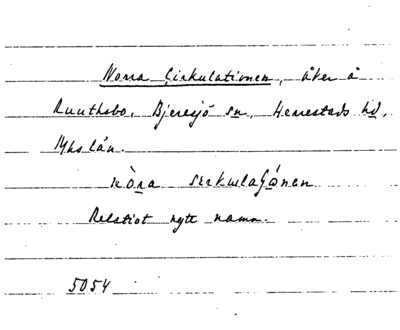 Norra Cirkulationen, åker å
Ruuthsbo, Bjeresjö sn, Herrestads hd,
Mhs län.
nòra serkulaʃónen
Relativt nytt namn.
5054